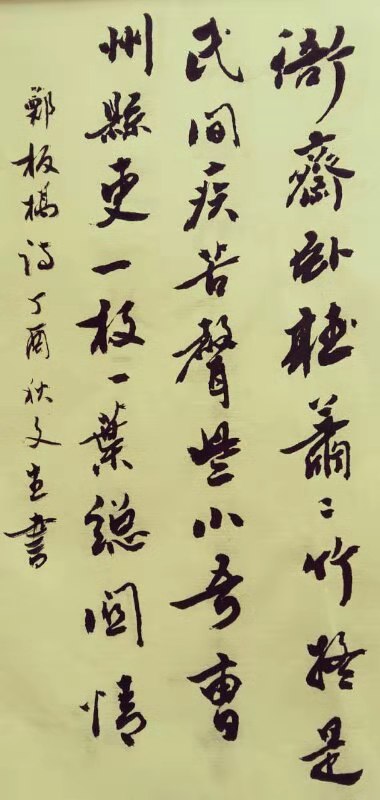 衙齋卧聽蕭〻竹擬是
民間疾苦聲些小吾曹
州縣吏一枝一葉總関情
鄭板橋詩丁酉秋文生書